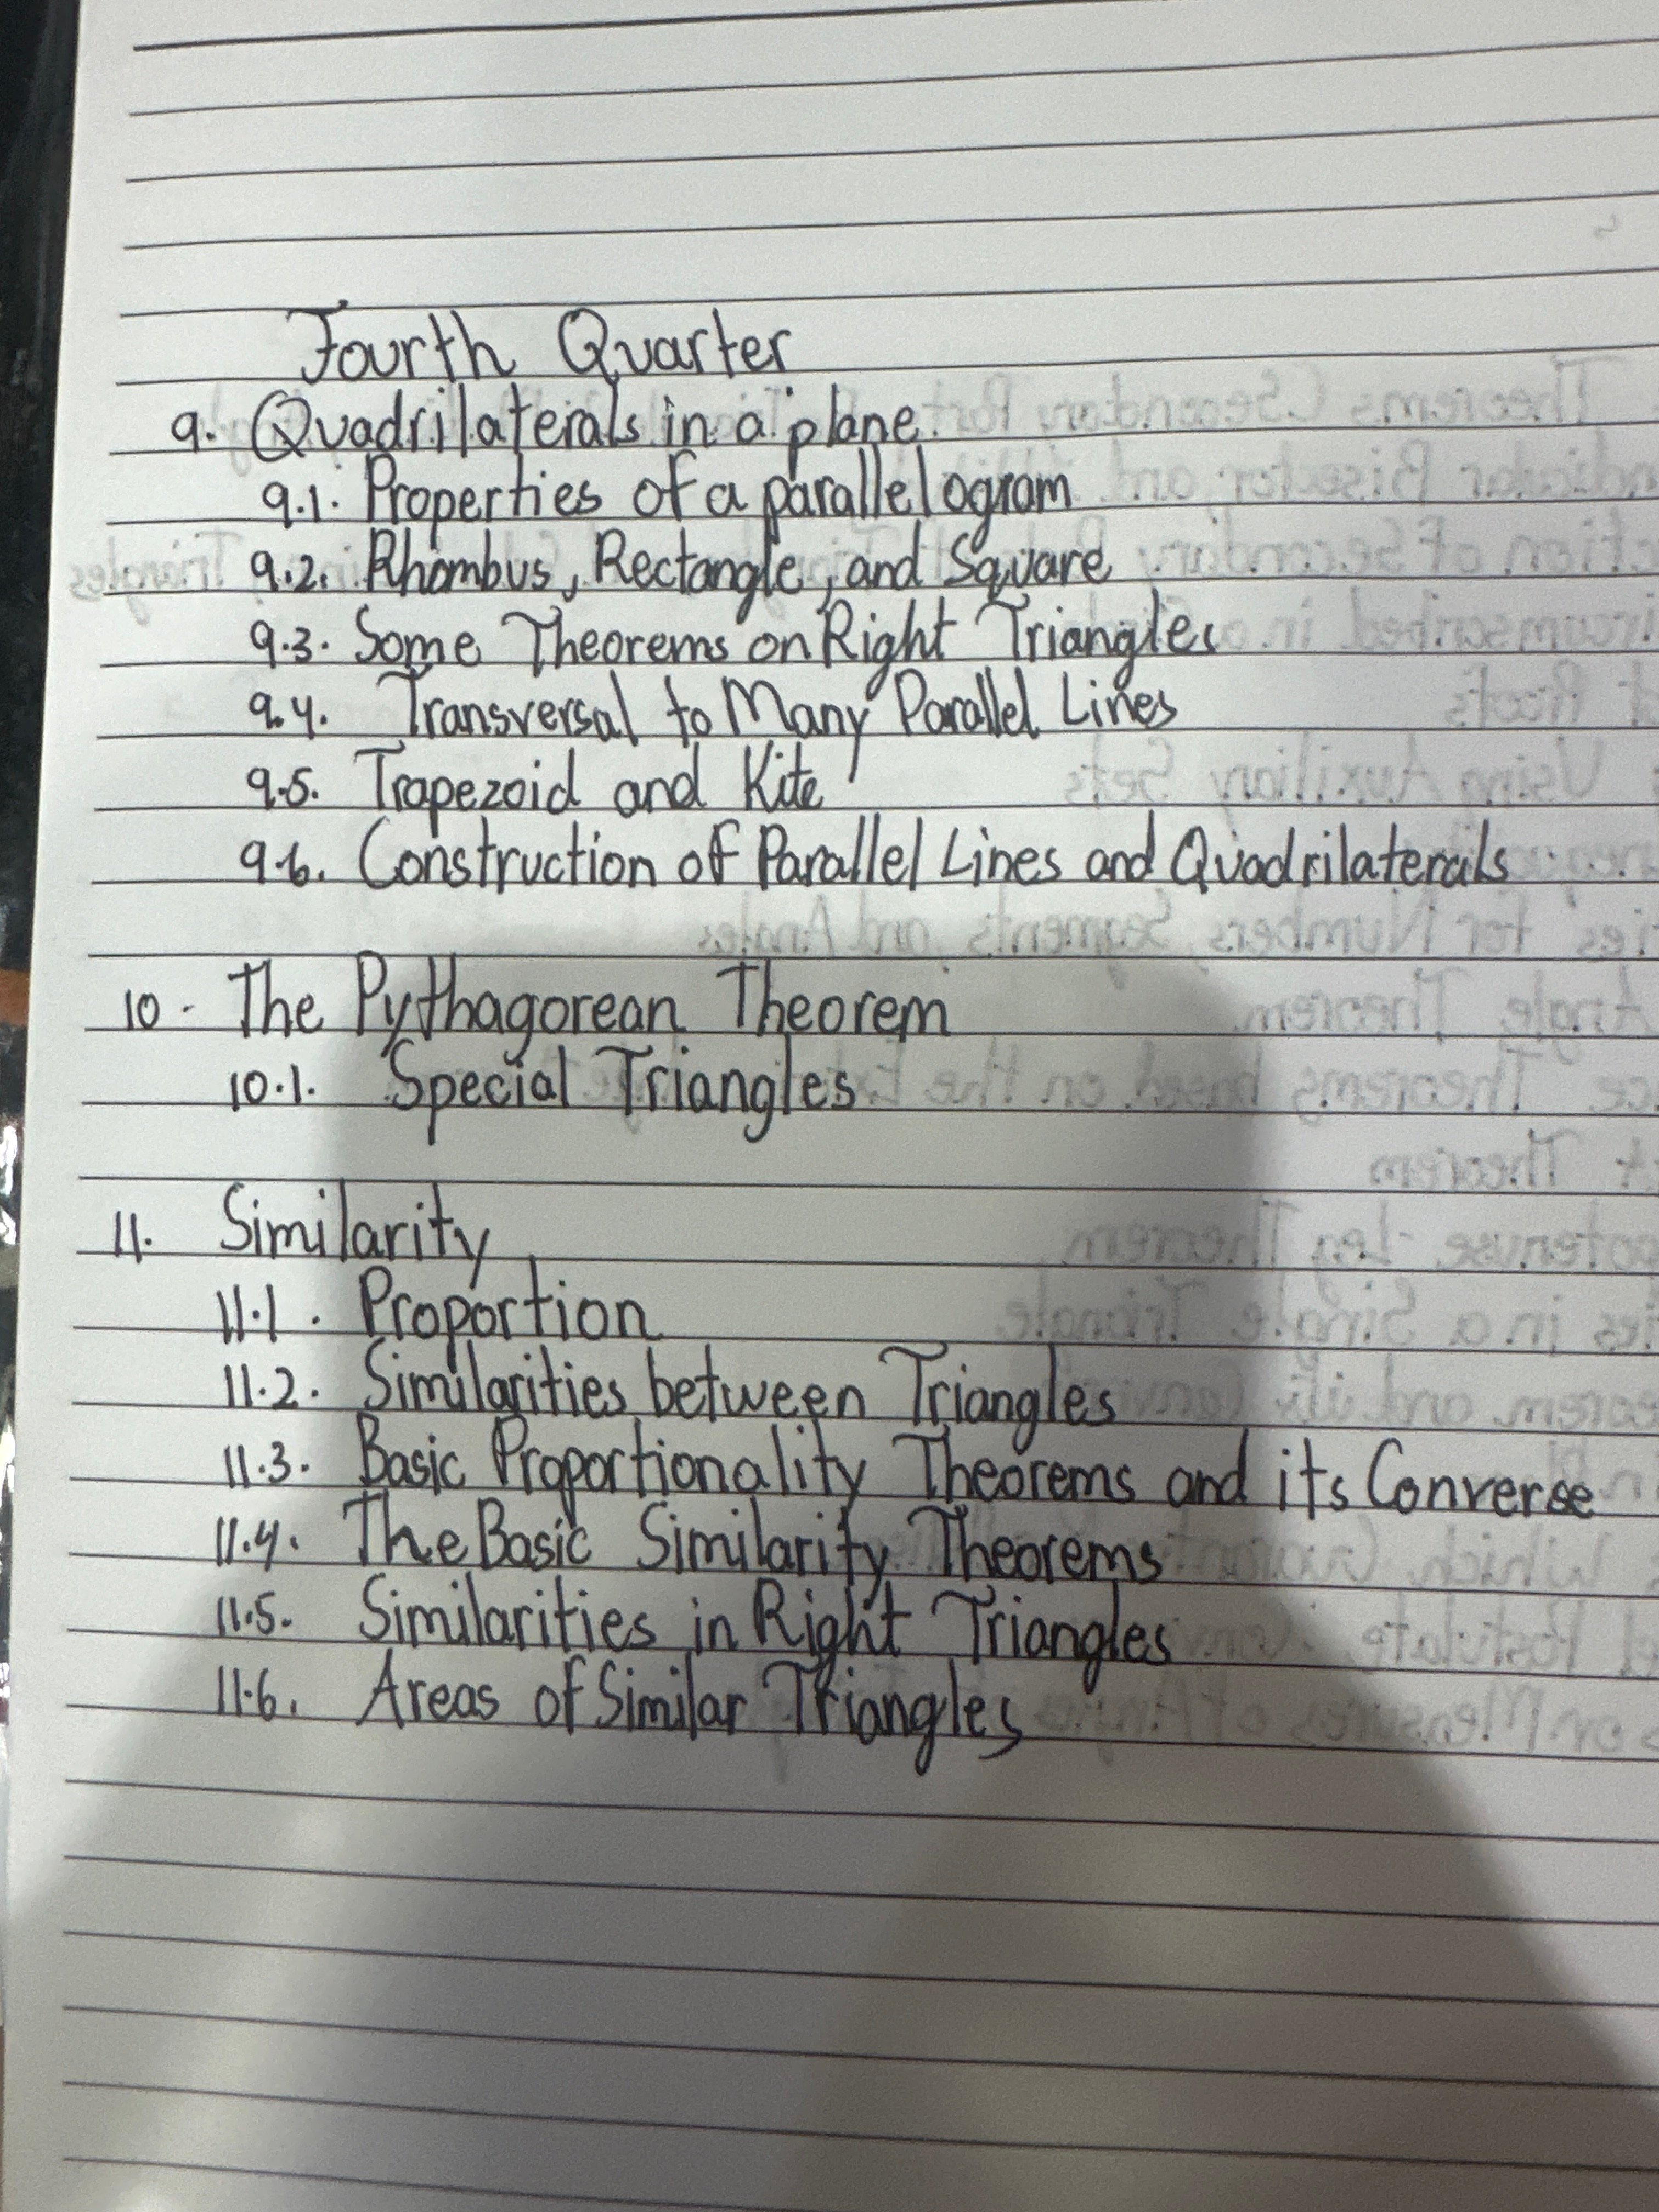 Fourth Quarter
9. Quadrilaterals in a plane.
9.1. Properties of a parallelogram
9.2. Rhombus, Rectangle, and Square
9.3. Some Theorems on Right Triangles
9.4. Transversal to Many Parallel Lines
9.5. Trapezoid and Kite
9.6. Construction of Parallel Lines and Quadrilaterals
10. The Pythagorean Theorem
10.1. Special Triangles
11. Similarity
11.1. Proportion
11.2. Similarities between Triangles
11.3. Basic Proportionality Theorems and its Converse
11.4. The Basic Similarity Theorems
11.5. Similarities in Right Triangles
11.6. Areas of Similar Triangles